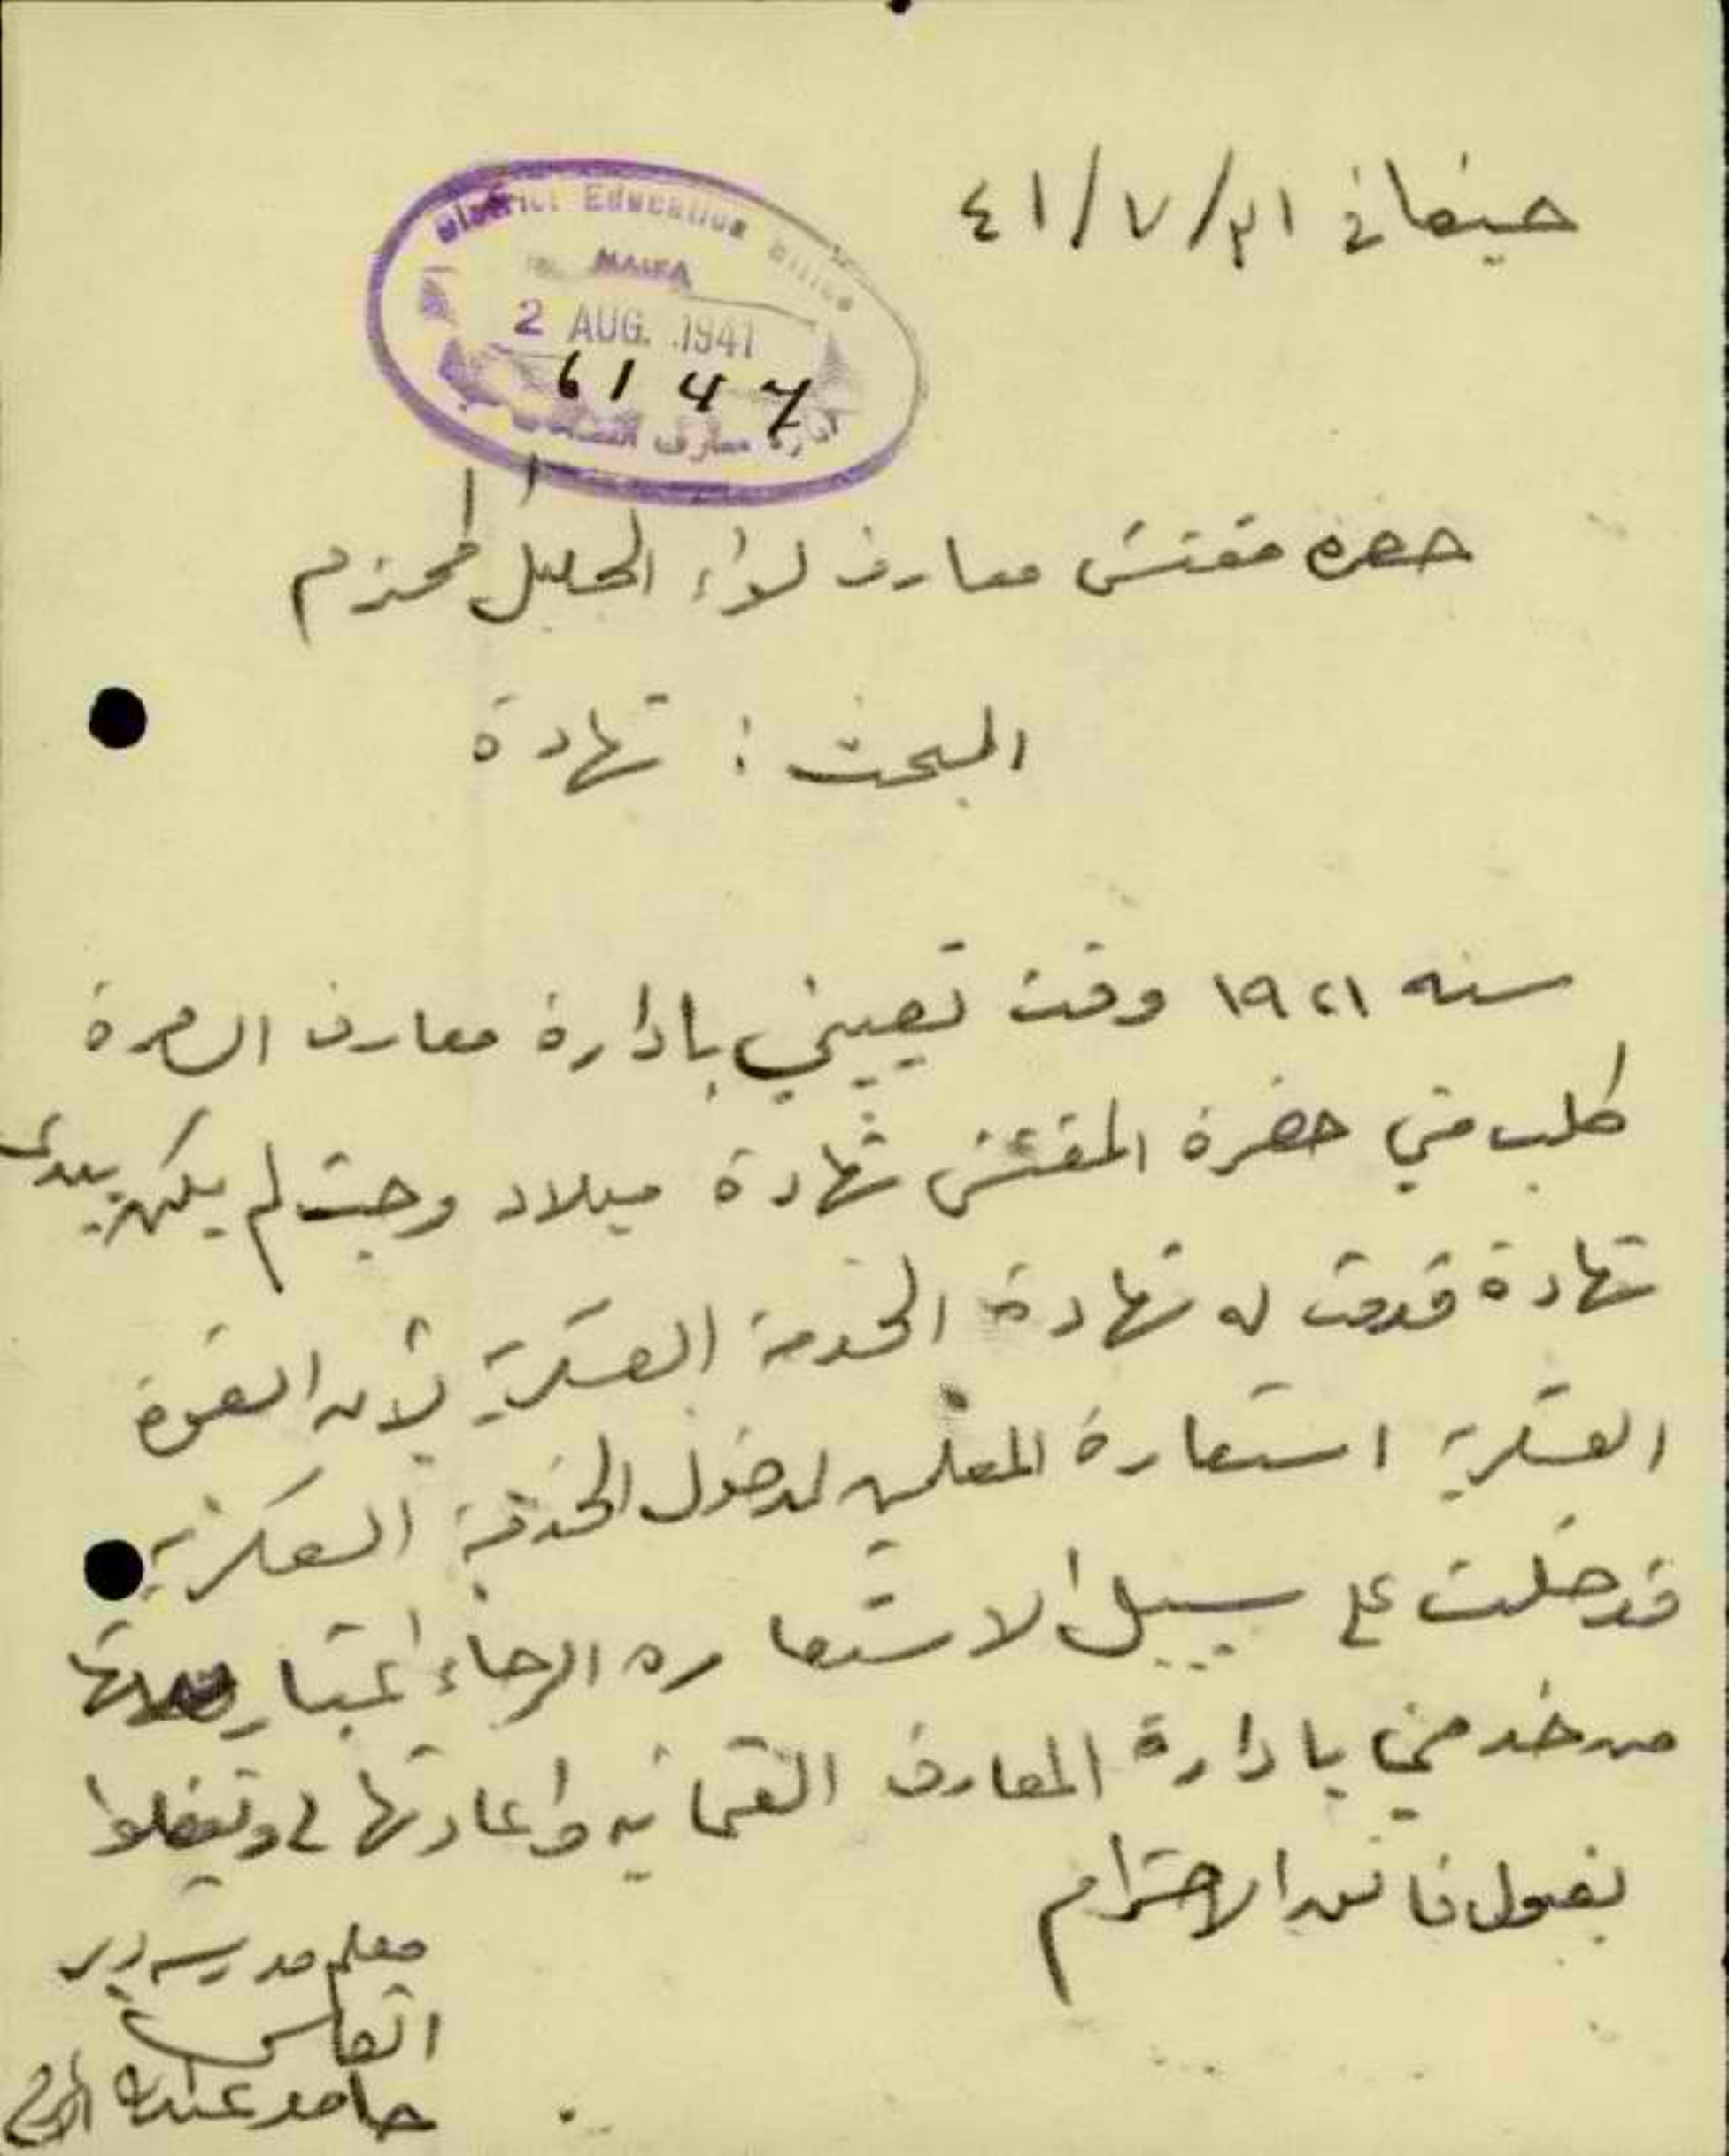 حيفا في ٣١/٧/٤١
District Education Office
HAIFA
2 AUG. 1941
6147
ادارة معارف
حضرة مفتش معارف لواء الجليل المحترم
المبحث : شهادة
سنه ١٩٢١ وقت تعييني بادارة معارف
طلب مني حضرة المفتش شهادة ميلاد وحيث لم يكن بيدي
شهادة قدمت له شهادة الخدمة العسكرية لأن القوة
العسكرية استعارة المعلمين لدخول الخدمة العسكرية
فدخلت على سبيل الاستعاره الرجاء اعتبار
من خدمتي بادارة المعارف العثمانيه واعادتها لي وتفضلوا
بقبول فائق الاحترام
معلم مدرسه دير
القاسي
حامد عبدالله